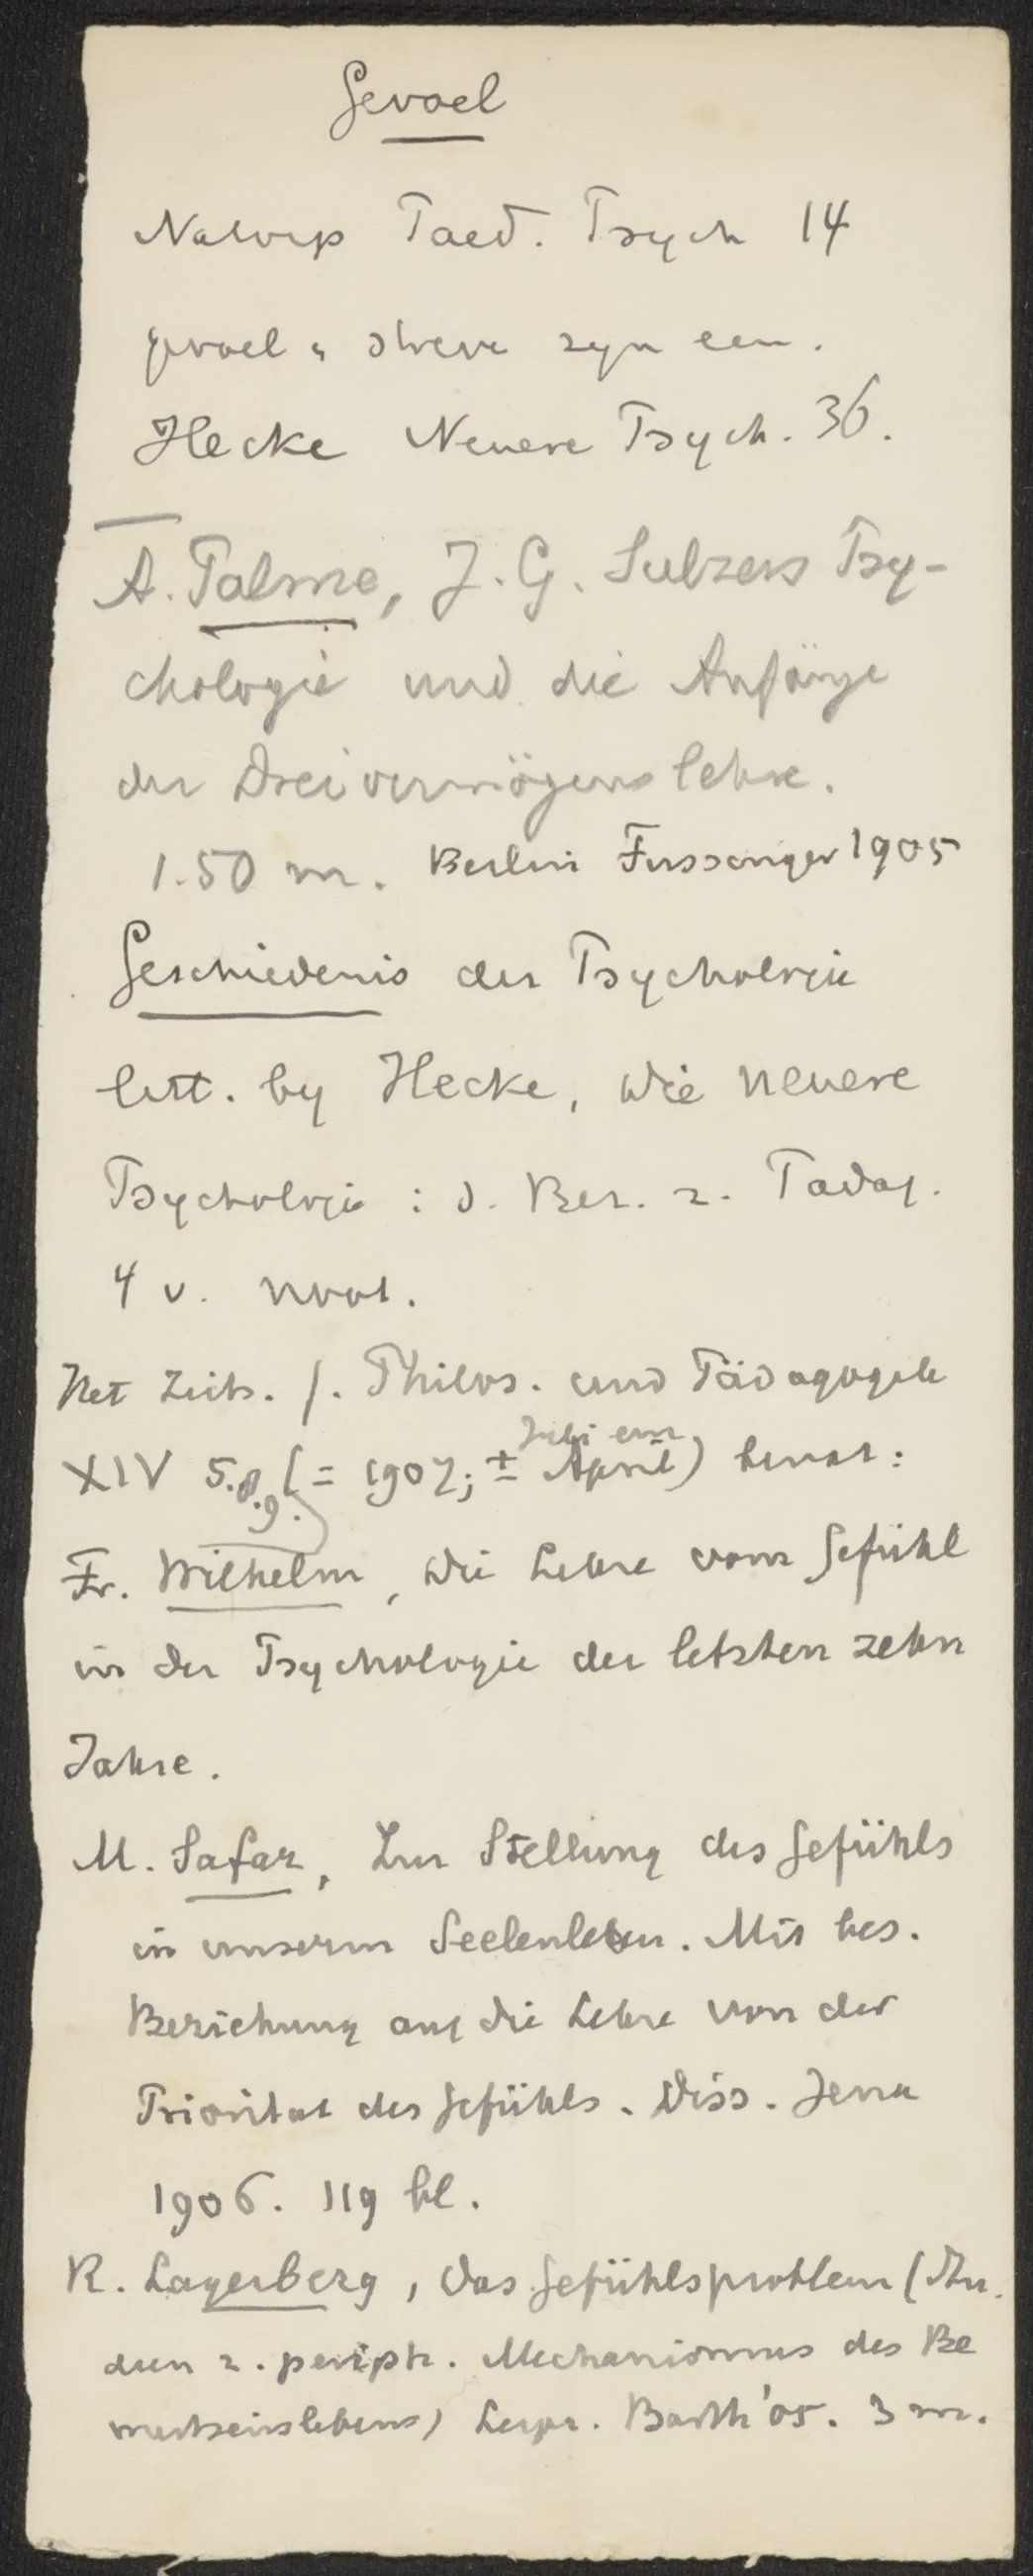 Gevoel
Natorp Paed. Psych 14
gevoel & streve zyn een.
Hecke Neuere Psych. 36.
A. Palme, J. G. Sulzers Psy-
chologie und die Anfänge
der Dreivermögenslehre.
1.50 m. Berlin Fussinger 1905
Geschiedenis der Psychologie
litt. by Hecke, Die neuere
Psychologie i. d. Bez. z. Pädag.
4 v. noot.
Het Zeits. f. Philos. und Pädagogik
XIV 5.8.9. (= 1907; ± April) bevat:
Juli
Fr. Wilhelm, Die Lehre vom Gefühl
in der Psychologie der letzten zehn
Jahre.
M. Safar, Zur Stellung des Gefühls
in unserm Seelenleben. Mit bes.
Beziehung auf die Lehre von der
Priorität des Gefühls. Diss. Jena
1906. 119 bl.
R. Lagerborg, Das Gefühlsproblem (Stu
dien z. periph. Mechanismus des Be
wustseinslebens) Leipz. Barth '05. 3 m.